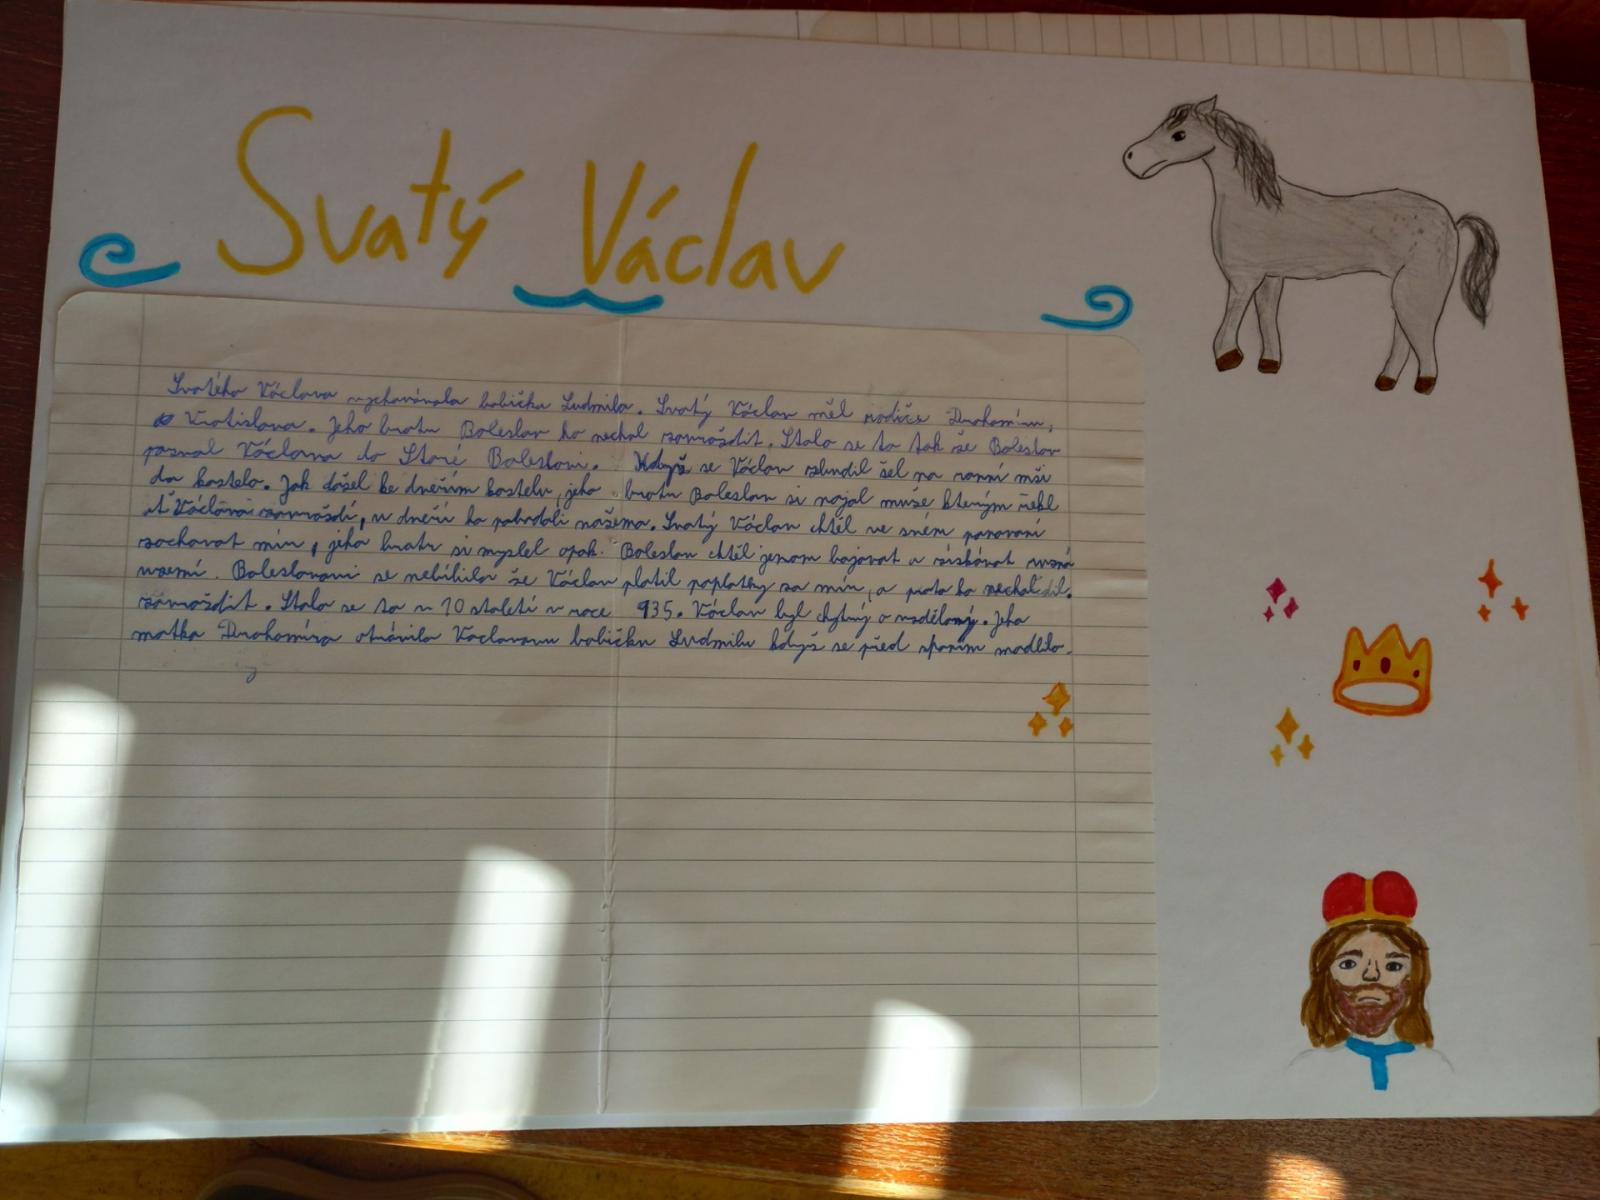 Svatý Václav
Svatého Václava vychovávala babička Ludmila. Svatý Václav měl rodiče Drahomíru,
Vratislava. Jeho bratr Boleslav ho nechal zavraždit. Stalo se to tak že Boleslav
pozval Václava do Staré Boleslavi. Když se Václav vzbudil šel na ranní mši
do kostela. Jak došel ke dveřím kostela, jeho bratr Boleslav si najal muže kterým řekl
ať Václava zavraždí, u dveří ho pobodali nožema. Svatý Václav chtěl ve svém panování
zachovat mír, jeho bratr si myslel opak. Boleslav chtěl jenom bojovat a získávat
území. Boleslavovi se nelíbilo že Václav platil poplatky za mír, a proto ho nechal
zavraždit. Stalo se to v 10 století v roce 935. Václav byl chytrý a vzdělaný. Jeho
matka Drahomíra otrávila Václavovu babičku Ludmilu když se před spaním modlila.